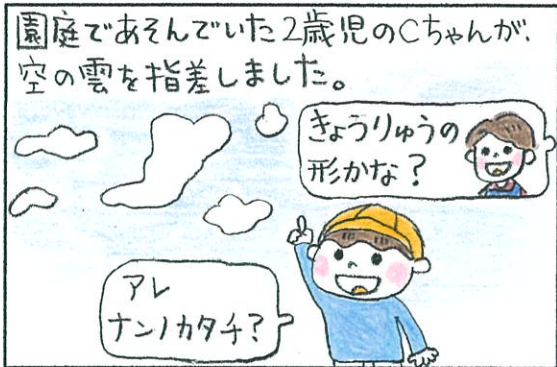 園庭であそんでいた2歳児のCちゃんが、
空の雲を指差しました。
きょうりゅうの
形かな？
アレ
ナンノカタチ？